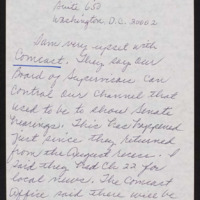 Suite 650
Washington D.C. 20002
I am very upset with
Comcast. They say our
Board of Supervisors can
control our Channel that
used to be to show Senate
hearings. This has happened
just since they returned
from the August recess. I
said they had Ch 22 for
local news. The Comcast
office said there will be